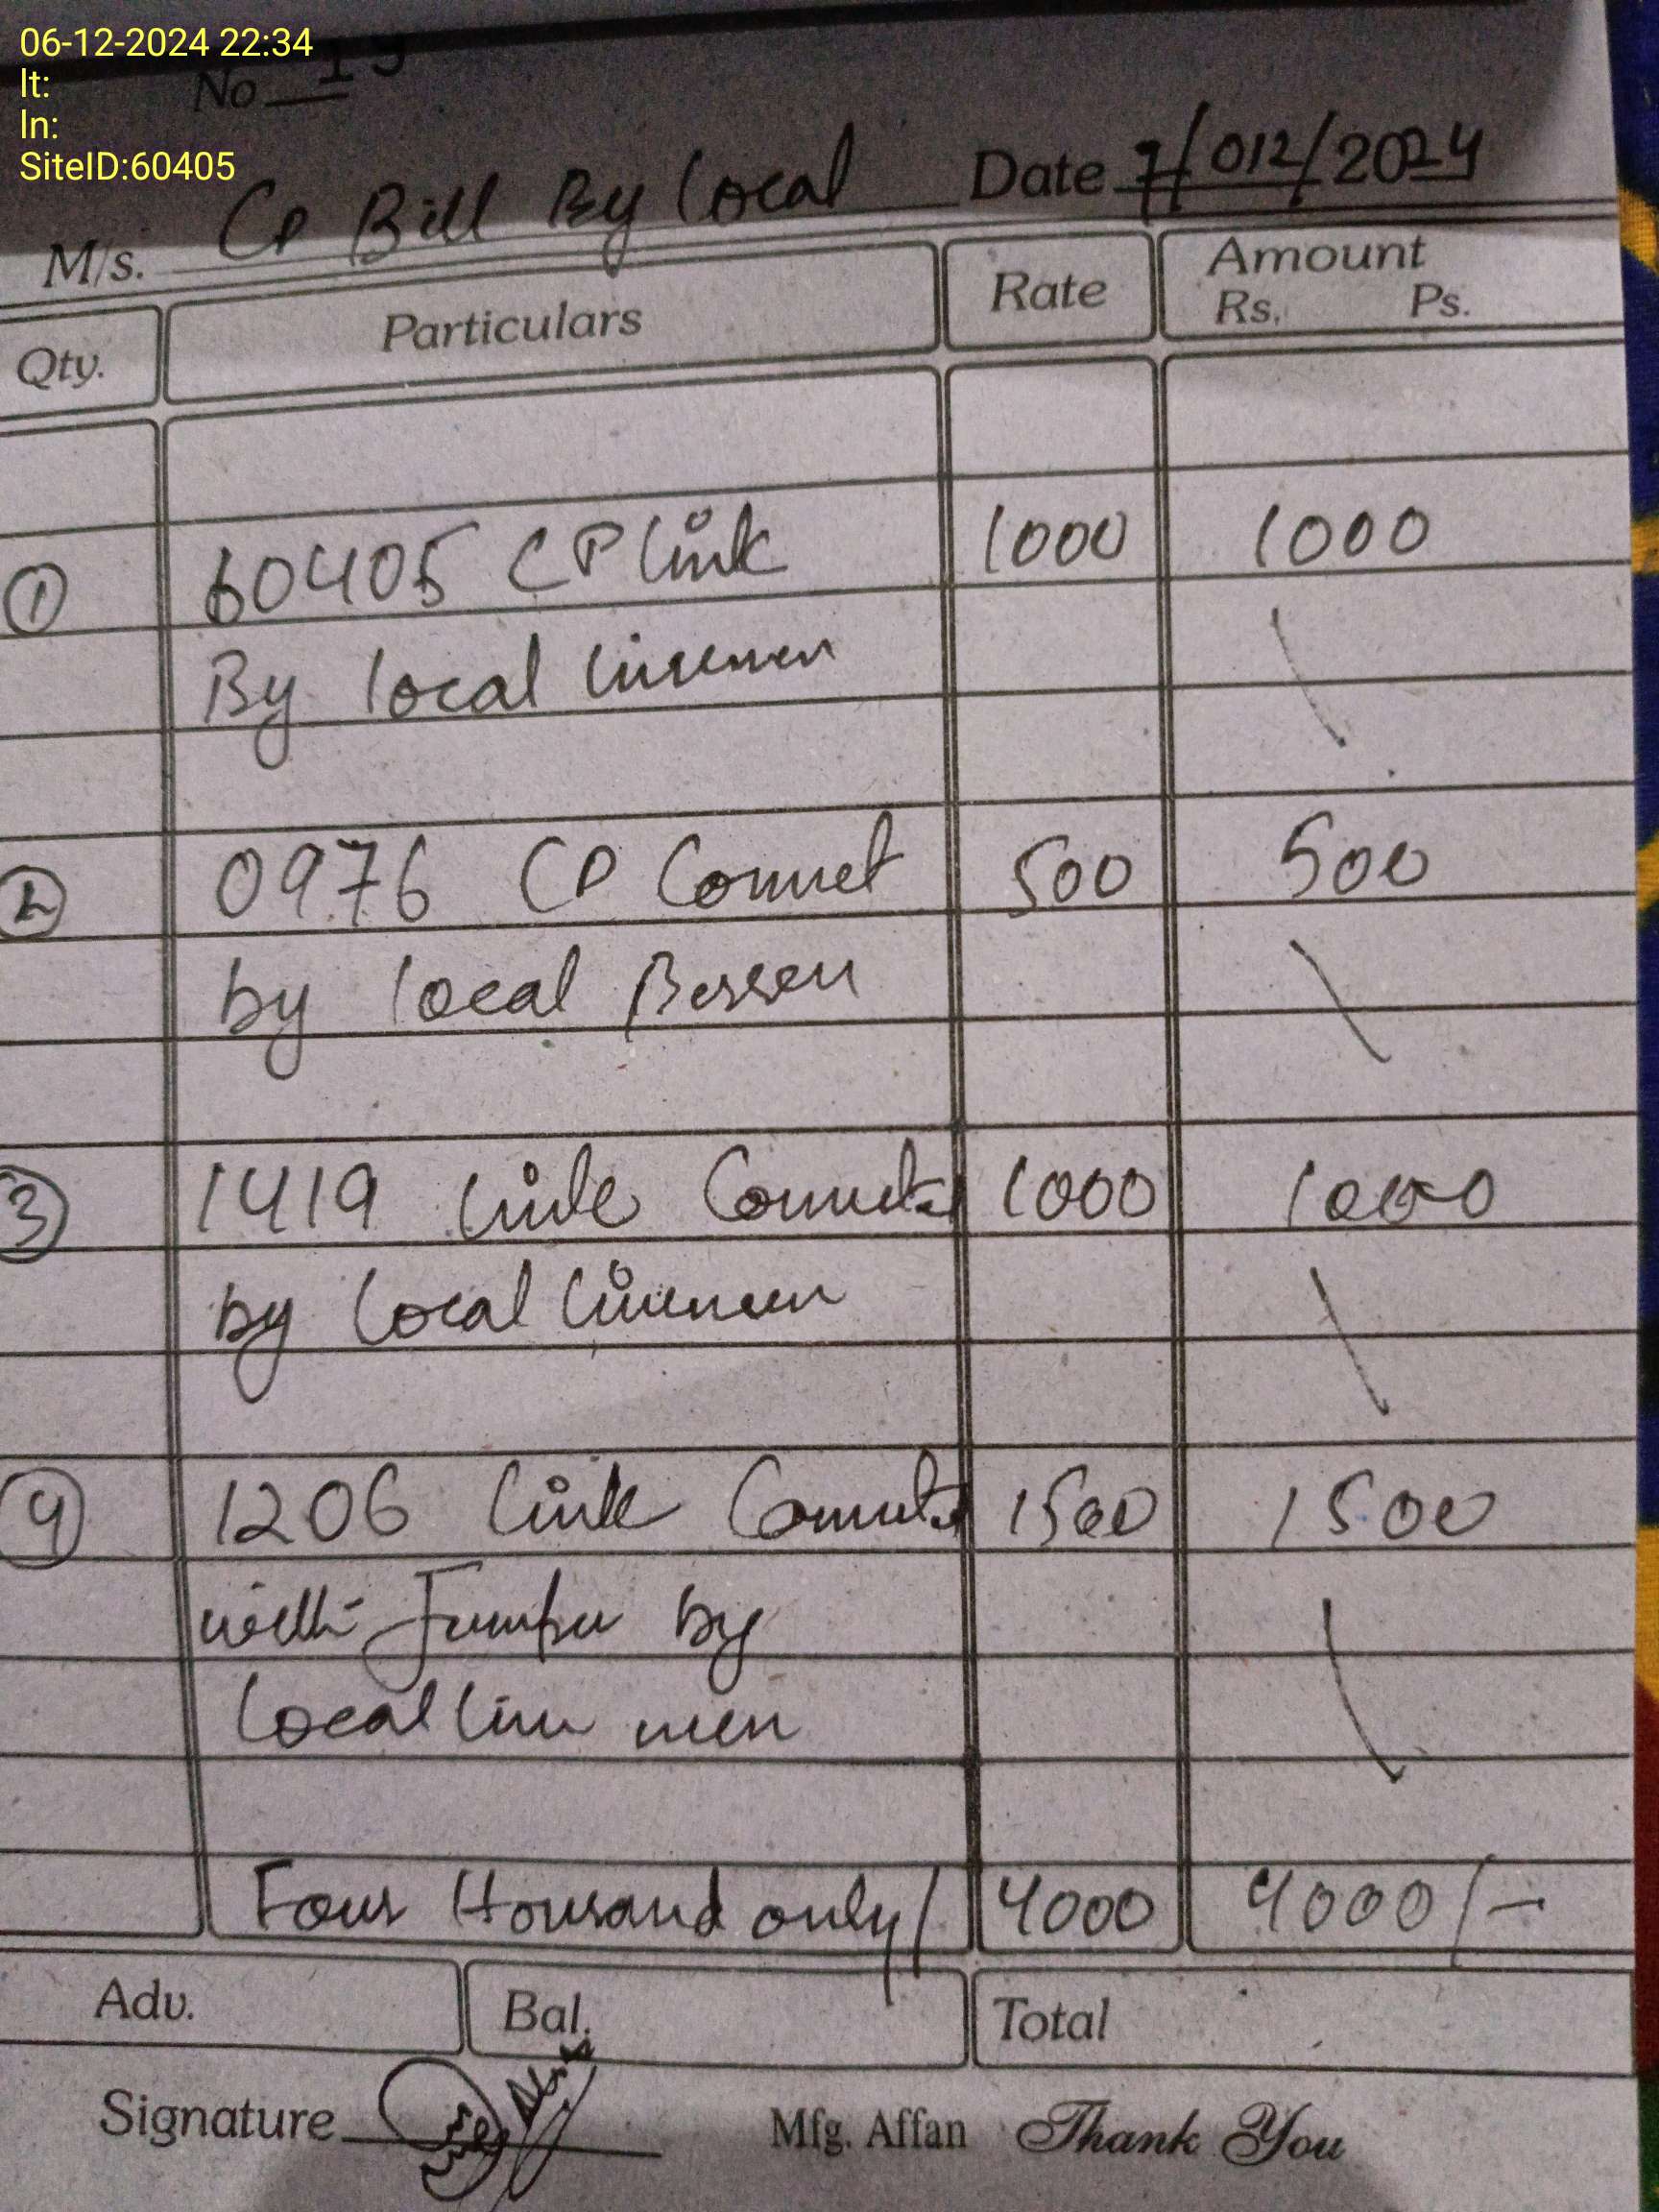 06-12-2024 22:34
lt:
ln:
SiteID:60405
No 19
M/s. CP Bill By Local Date 7/012/2024
Qty. Particulars Rate Amount
Rs. Ps.
① 60405 CP link 1000 1000
By local linemen
② 0976 CP Connet 500 500
by local Person
③ 1419 link Connect 1000 1000
by local linemen
④ 1206 link Connect 1500 1500
with Jumper by
local line men
Four Housand only/ 4000 4000/-
Adv. Bal. Total
Signature Mfg. Affan Thank You